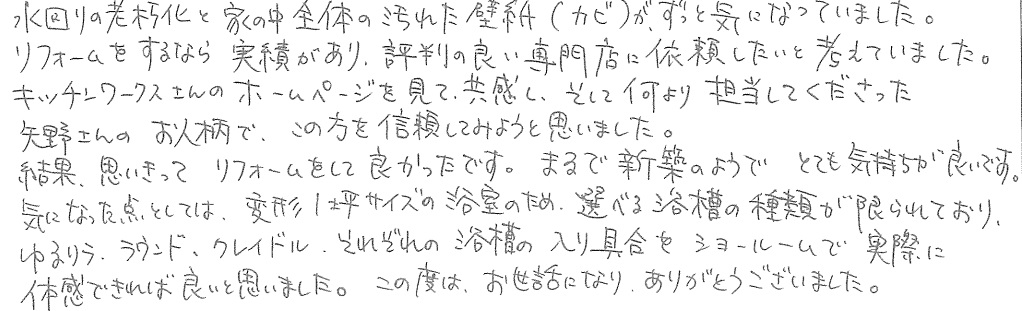 水回りの老朽化と家の中全体の汚れた壁紙(カビ)が、ずっと気になっていました。
リフォームをするなら実績があり、評判の良い専門店に依頼したいと考えていました。
キッチンワークスさんのホームページを見て、共感し、そして何より担当してくださった
矢野さんのお人柄で、この方を信頼してみようと思いました。
結果、思いきってリフォームをして良かったです。まるで新築のようでとても気持ちが良いです。
気になった点としては、変形1坪サイズの浴室のため、選べる浴槽の種類が限られており、
ゆるりら、ラウンド、クレイドル、それぞれの浴槽の入り具合をショールームで実際に
体感できれば良いと思いました。この度は、お世話になり、ありがとうございました。